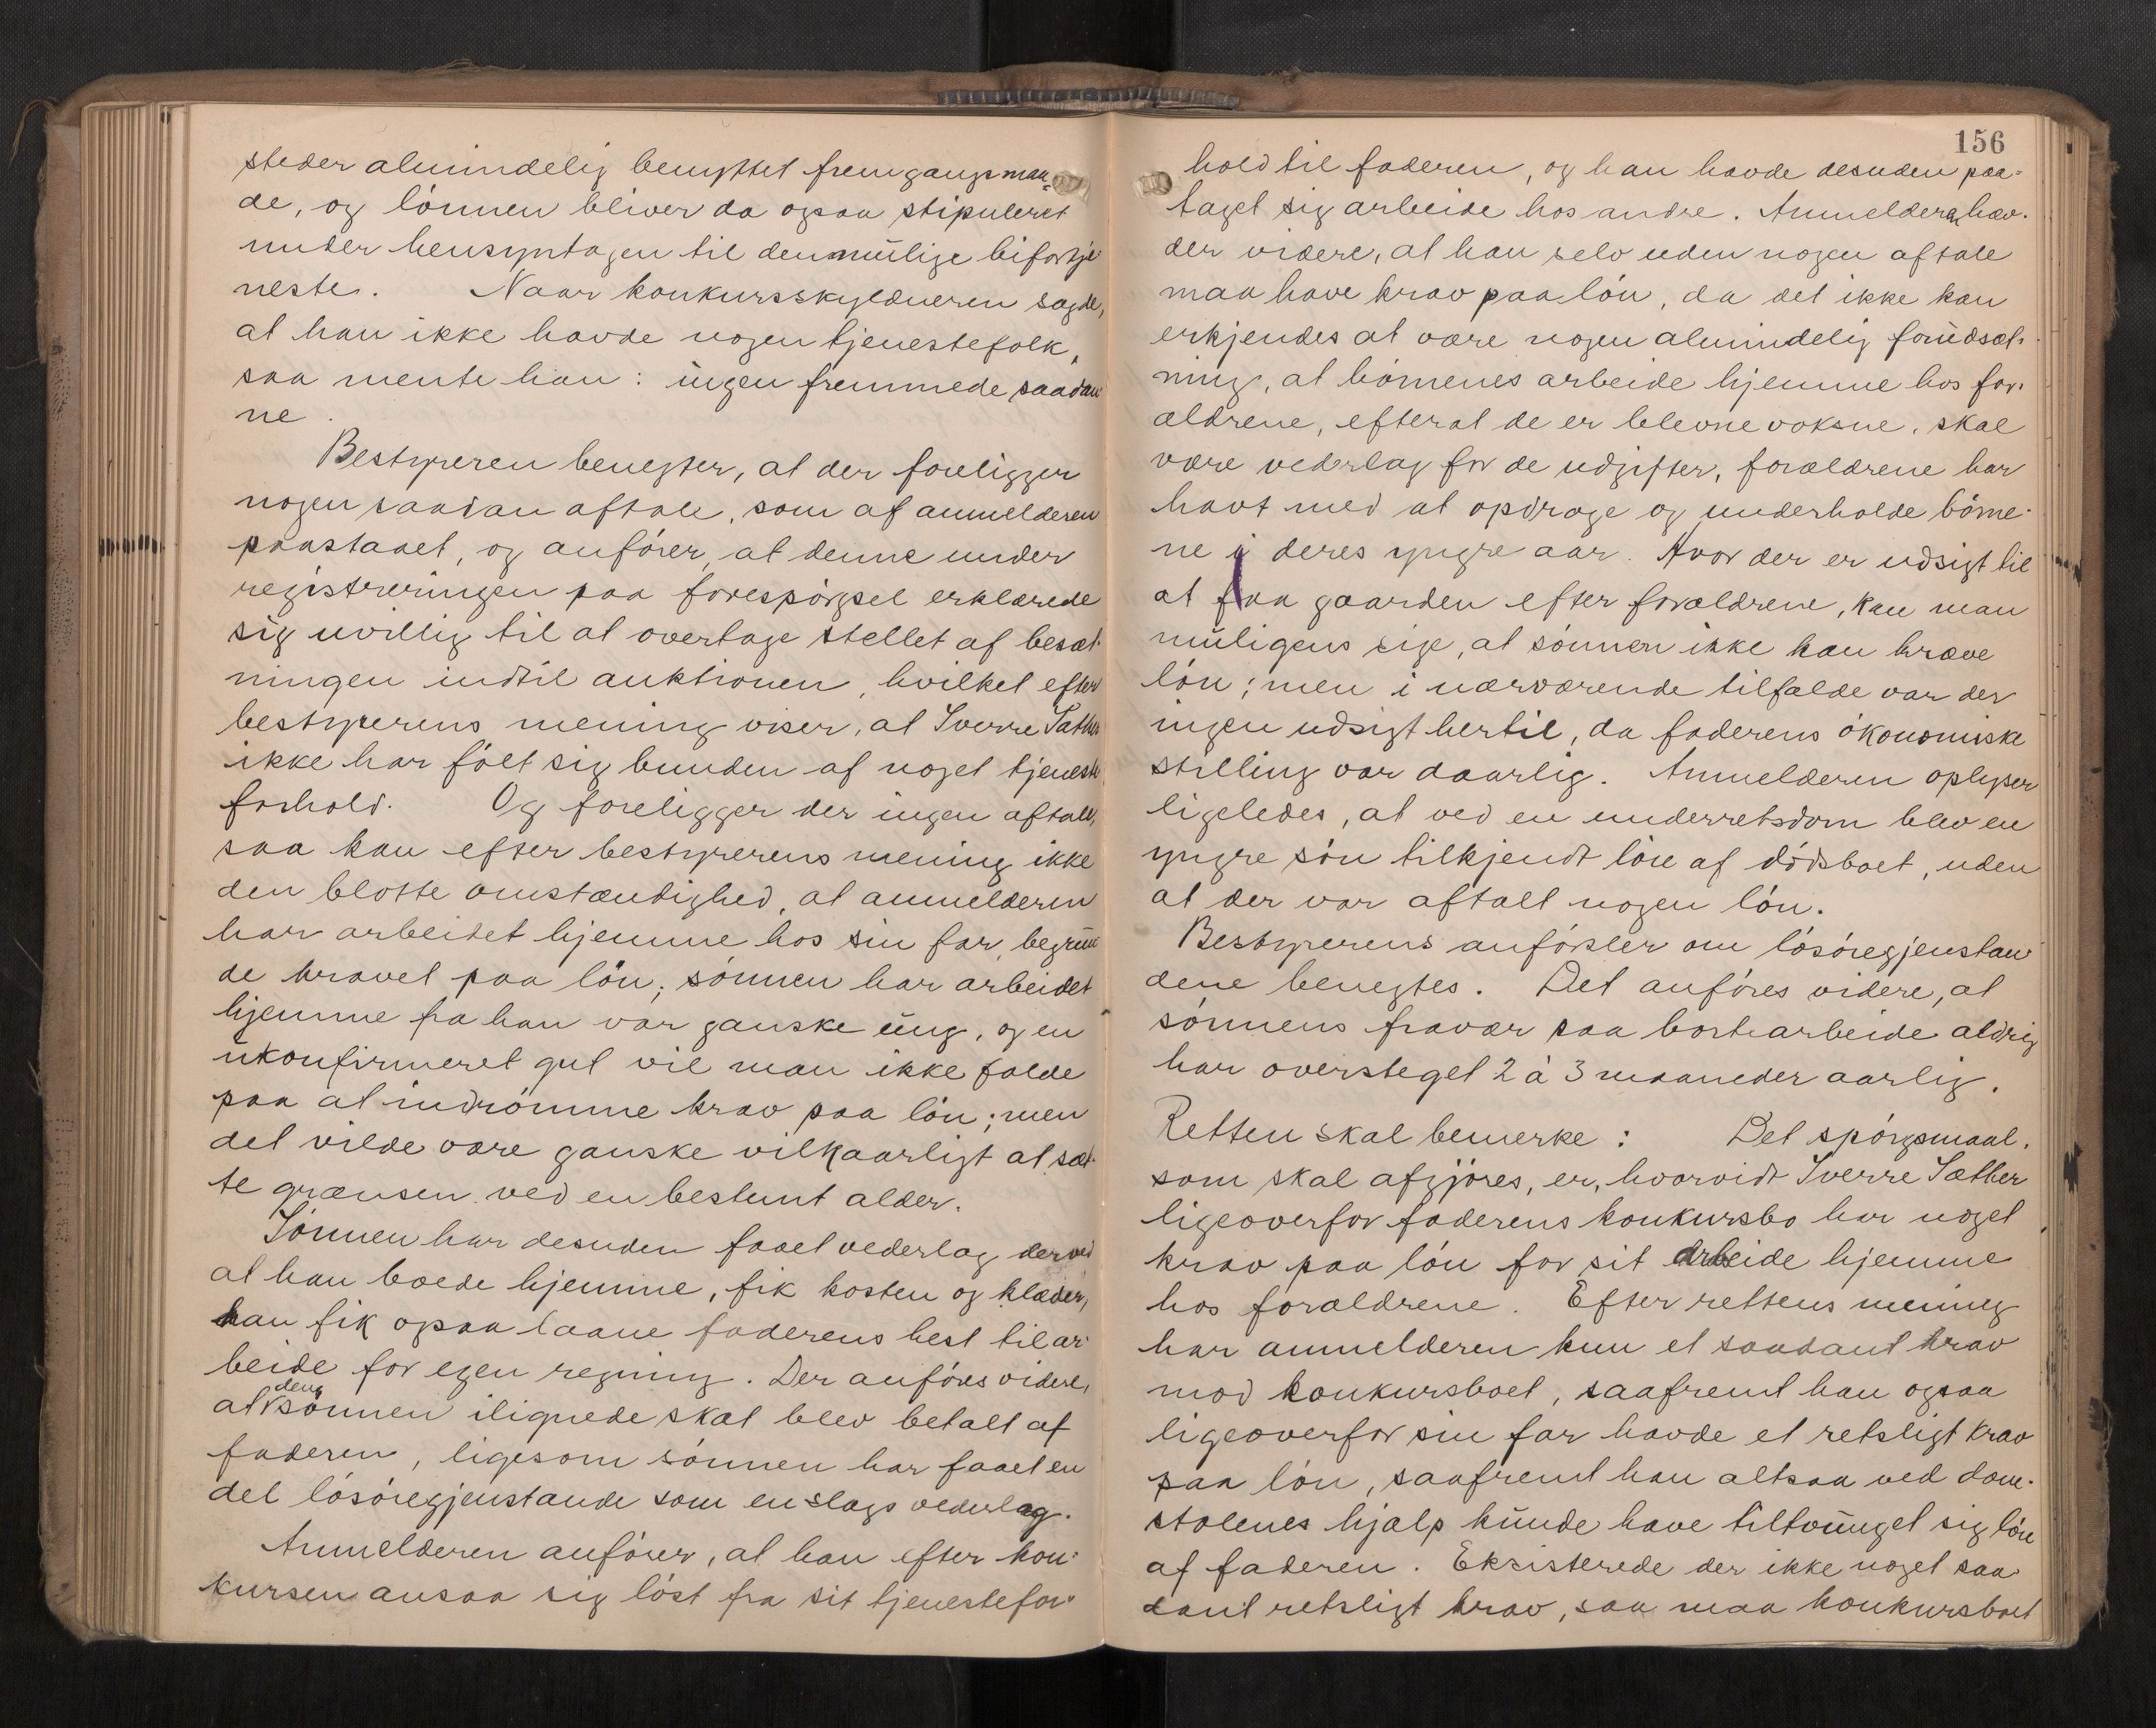 steder almindelig benyttet fremgangsmaa-
de, og lönnen bliver da ogsaa stipuleret
under hensyntagen til den mulige bifortje-
neste. Naar konkursskyldneren sagde,
at han ikke havde nogen tjenestefolk,
saa mente han: ingen fremmede saadan-
ne.
Bestyreren benegter, at der foreligger
nogen saadan aftale, som af anmelderen
paastaaet, og anförer, at denne under
registreringen paa forespörgsel erklærede
sig uvillig til at overtage stellet af besæt-
ningen indtil auktionen, hvilket efter
bestyrerens mening viser, at Sverre Sæther
ikke har fölt sig bunden af noget tjeneste-
forhold. Og foreligger der ingen aftale,
saa kan efter bestyrerens mening ikke
den blotte omstændighed, at anmelderen
har arbeidet hjemme hos sin far, begrun-
de kravet paa lön; sönnen har arbeidet
hjemme fra han var ganske ung, og en
ukonfirmeret gut vil man ikke falde
paa at indrömme krav paa lön; men
det vilde være ganske vilkaarligt at sæt-
te grænsen ved en bestemt alder.
Sönnen har desuden faaet vederlag derved
at han boede hjemme, fik kosten og klæder,
han fik ogsaa laane faderens hest til ar-
beide for egen regning. Der anföres videre,
at den sönnen ilignede skat blev betalt af
faderen, ligesom sönnen har faaet en
del lösöregjenstande som en slags vederlag.
Anmelderen anförer, at han efter kon-
kursen ansaa sig löst fra sit tjenestefor-
156
hold til faderen, og han havde desuden paa-
taget sig arbeide hos andre. Anmelderen hæv-
der videre, at han selv uden nogen aftale
maa have krav paa lön, da det ikke kan
erkjendes at være nogen almindelig forudsæt-
ning, at börnenes arbeide hjemme hos for-
ældrene, efterat de er blevne voksne, skal
være vederlag for de udgifter, forældrene har
havt med at opdrage og underholde börne-
ne i deres yngre aar. Hvor der er udsigt til
at faa gaarden efter forældrene, kan man
muligens sige, at sönnen ikke kan kræve
lön; men i nærværende tilfælde var der
ingen udsigt hertil, da faderens ökonomiske
stilling var daarlig. Anmelderen oplyser
ligeledes, at ved en underretsdom blev en
yngre sön tilkjendt lön af dödsboet, uden
at der var aftalt nogen lön.
Bestyrerens anförsler om lösöregjenstan-
dene benegtes. Det anföres videre, at
sönnens fravær paa bortearbeide aldrig
har oversteget 2 à 3 maaneder aarlig.
Retten skal bemerke: Det spörgsmaal,
som skal afgjöres, er, hvorvidt Sverre Sæther
ligeoverfor faderens konkursbo har noget
krav paa lön for sit arbeide hjemme
hos forældrene. Efter rettens mening
har anmelderen kun et saadant krav
mod konkursboet, saafremt han ogsaa
ligeoverfor sin far havde et retsligt krav
paa lön, saafremt han altsaa ved dom-
stolenes hjælp kunde have tiltvunget sig lön
af faderen. Eksisterede der ikke noget saa-
dant retsligt krav, saa maa konkursboet